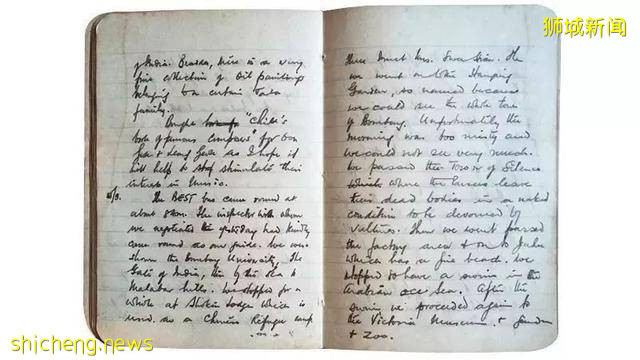 狮城新闻
of India. Besides, there is a very
fine collection of oil paintings
belonging to a certain Tata
family.
Bought "Child's
book of famous composers" for
as I hope it
will help to stimulate their
interest in Music.
The BEST bus came round at
about 8am. The inspector with whom
we negotiated the yesterday had kindly
came round as our guide. We were
shown the Bombay University, The
Gate of India, the sea to
Malabar hills. We stopped for a
while at Lodge which is
used as a Chinese Refugee camp
there meet Mrs.
we went on to the Hanging
Garden, so named because
we could see the whole town
of Bombay. Unfortunately the
morning was too misty and
we could not see very much.
We passed the Tower of Silence
where the Parsees leave
their dead bodies in a naked
condition to be devoured by
vultures. Then we went passed
the factory area & on to Juhu
which has a fine beach. We
stopped to have a swim in the
Arabian Sea. After the
swim we proceeded again to
the Victoria Museum & Garden
& Zoo.
shicheng.news